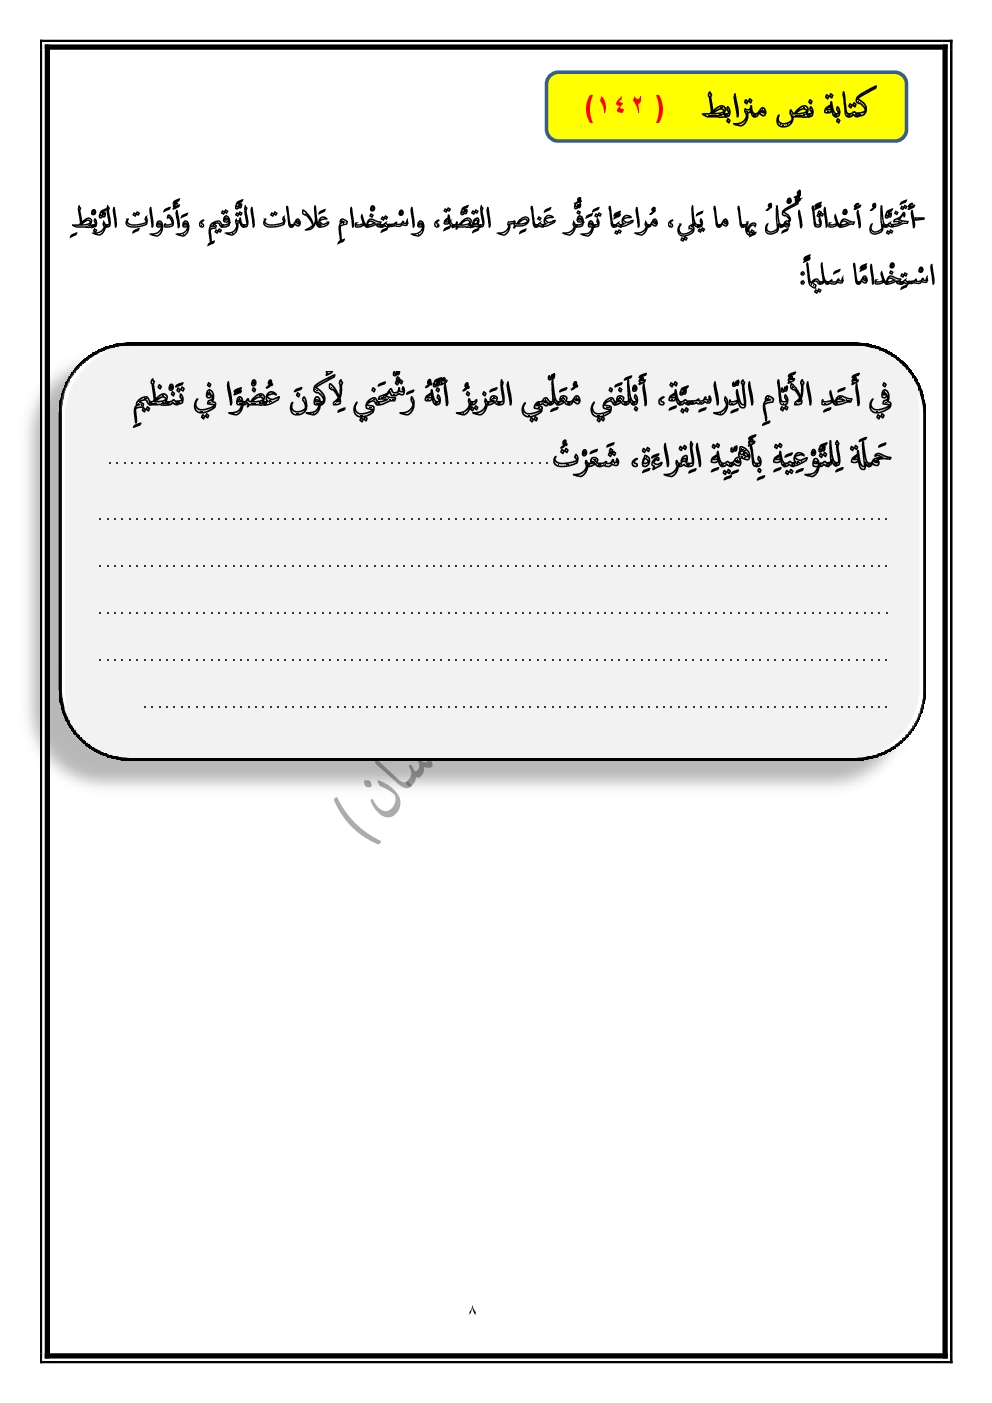 كتابة نص مترابط (١٤٢)
-أَتَخَيَّلُ أحْداثًا أُكْمِلُ بِها ما يَلي، مُراعيًا تَوَفُّر عَناصِر القِصَّةِ، واسْتِخْدامِ عَلامات التَّرقيمِ، وَأَدَواتِ الرَّبْطِ
اسْتِخْدامًا سَليماً:
في أَحَدِ الأَيّامِ الدِّراسِيَّةِ، أَبْلَغَني مُعَلِّمي العَزيزُ أنَّهُ رَشَّحَني لِأَكونَ عُضْوًا في تَنْظيمِ
حَملَة لِلتَّوْعِيَةِ بِأَهَمِّيِةِ القِراءَةِ، شَعَرْتُ ..................................................
..........................................................................................
..........................................................................................
..........................................................................................
..........................................................................................
.....................................................................................
٨